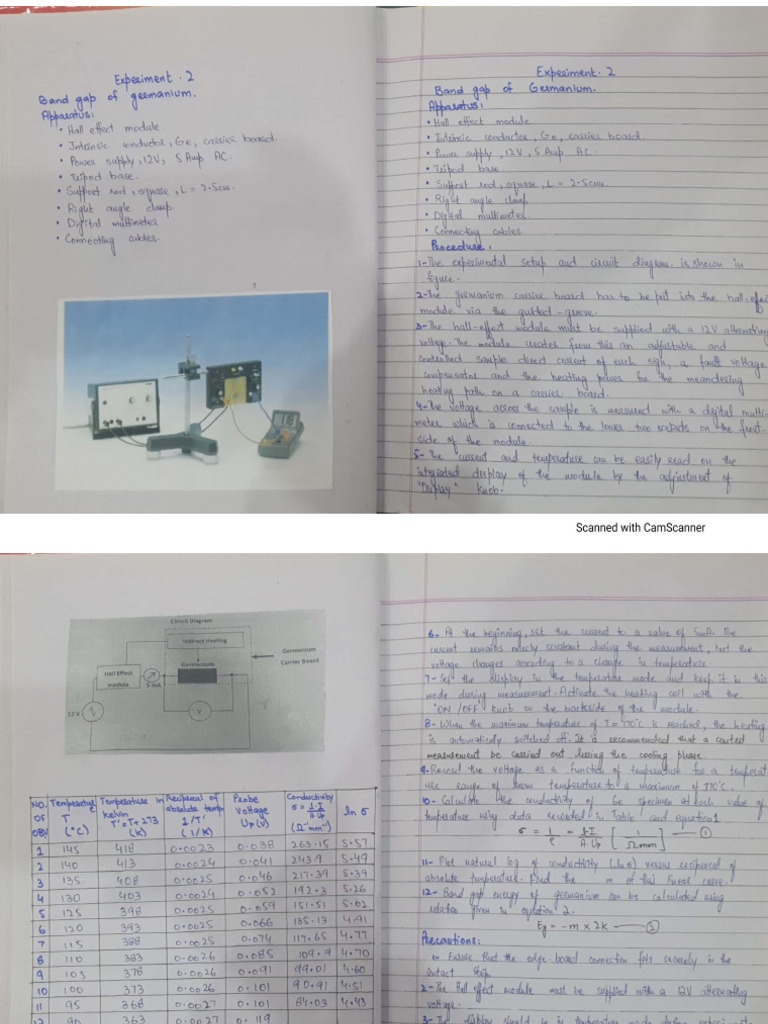 Experiment . 2
Band gap of germanium.
Apparatus:
• Hall effect module
• Intrinsic conductor, Ge, carrier board.
• Power supply, 12V, 5 Amp AC.
• Tripod base.
• Support rod, square, L = 2.5cm.
• Right angle clamp.
• Digital multimeter
• Connecting cables.
Experiment . 2
Band gap of Germanium.
Apparatus:
• Hall effect module
• Intrinsic conductor, Ge, carrier board.
• Power supply, 12V, 5 Amp AC.
• Tripod base
• Support rod, square, L = 2.5cm
• Right angle clamp
• Digital multimeter
• Connecting cables
Procedure.
1- The experimental setup and circuit diagram is shown in
figure.
2- The germanium carrier board has to be put into the hall-effect
module via the guided-groove.
3- The hall-effect module must be supplied with a 12V alternating
voltage. The module creates from this an adjustable and
controlled sample direct current of each sign, a fault voltage
compensator and the heating power for the meandering
heating path on a carrier board.
4- The voltage across the sample is measured with a digital multi-
meter which is connected to the lower two sockets on the front-
side of the module.
5- The current and temperature can be easily read on the
integrated display of the module by the adjustment of
"Display" knob.
Scanned with CamScanner
Circuit Diagram
Indirect Heating
Germanium
Carrier Board
Germanium
Hall Effect
module
5 mA
12 V
V
NO. OF OBV
Temperature T (°C)
Temperature in kelvin T' = T + 273 (K)
Reciprocal of absolute temp 1/T' (1/K)
Probe Voltage Up (V)
Conductivity σ = 1·I / A Up (Ω⁻¹mm⁻¹)
ln σ
1 145 418 0.0023 0.038 263.15 5.57
2 140 413 0.0024 0.041 243.9 5.49
3 135 408 0.0025 0.046 217.39 5.39
4 130 403 0.0024 0.052 192.3 5.26
5 125 398 0.0025 0.059 151.51 5.02
6 120 393 0.0025 0.066 135.13 4.91
7 115 388 0.0025 0.074 117.65 4.77
8 110 383 0.0026 0.085 109.9 4.70
9 105 378 0.0026 0.091 99.01 4.60
10 100 373 0.0026 0.101 90.91 4.51
11 95 368 0.0027 0.101 84.03 4.43
12 90 363 0.0027 0.119
6- At the beginning, set the current to a value of 5mA. The
current remains nearly constant during the measurement, but the
voltage changes according to a change in temperature.
7- Set the display in the temperature mode and keep it in this
mode during measurement. Activate the heating coil with the
"ON/OFF" knob on the backside of the module.
8- When the maximum temperature of T = 170°C is reached, the heating
is automatically switched off. It is recommended that a
measurement be carried out during the cooling phase.
9- Record the voltage as a function of temperature for a temperat
ure range of room temperature to a maximum of 170°C.
10- Calculate the conductivity of Ge specimen at each value of
temperature using data recorded in Table and equation 1
σ = 1/ρ = 1·I / A Up [1/Ωmm] — ①
11- Plot natural log of conductivity (ln σ) versus reciprocal of
absolute temperature. Find the m of this linear curve.
12- Band gap energy of germanium can be calculated using
relation given in equation 2.
Eg = -m × 2k — ②
Precautions:
1- Ensure that the edge-board connection fits securely in the
contact strip
2- The Hall effect module must be supplied with a 12V alternating
voltage.
3- The display should be in temperature mode during